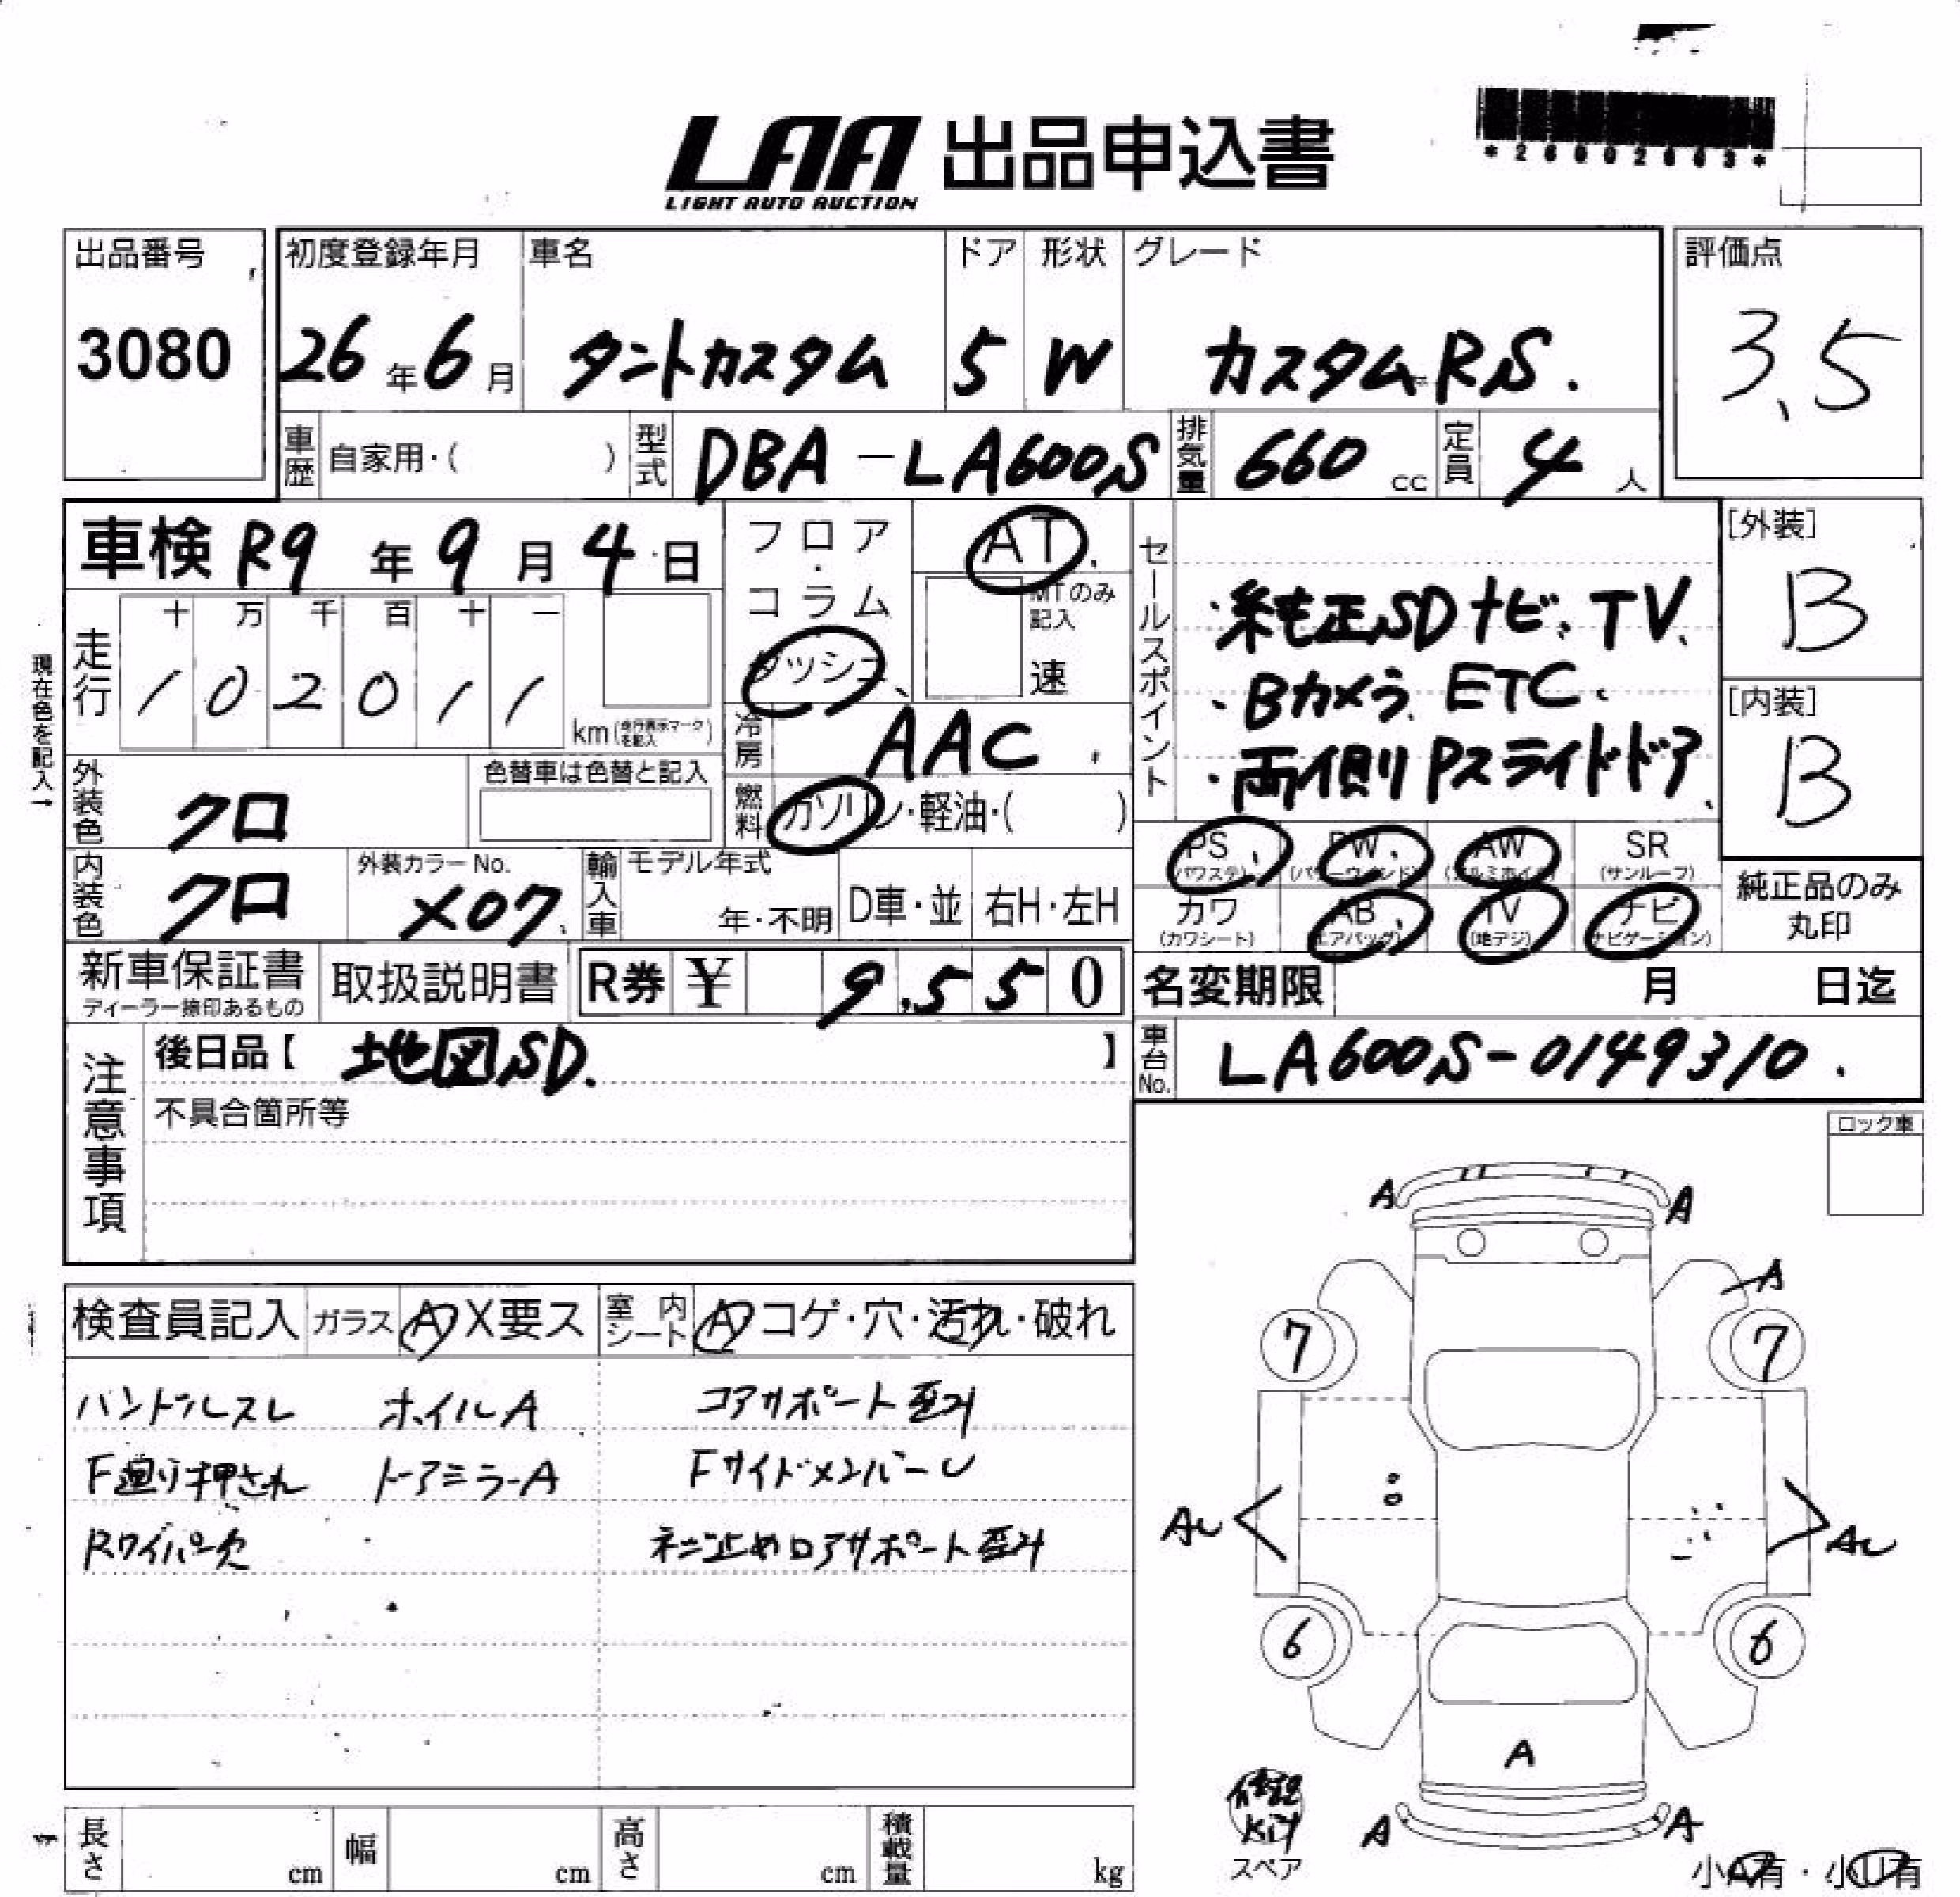 *26002603*
LAA 出品申込書
LIGHT AUTO AUCTION
出品番号
3080
初度登録年月
26年6月
車名
タントカスタム
ドア
5
形状
W
グレード
カスタムRS.
評価点
3.5
車歴 自家用・( )
型式 DBA-LA600S
排気量 660 cc
定員 4 人
車検 R9年9月4日
フロア・コラム
ダッシュ
AT
MTのみ記入
速
セールスポイント
・純正SDナビ、TV、
・Bカメラ、ETC.
・両側Pスライドドア、
[外装]
B
[内装]
B
現在色を記入→
走行
十 万 千 百 十 一
1 0 2 0 1 1
km(走行表示マークを記入)
冷房 AAC.
燃料 ガソリン・軽油・( )
外装色 クロ
色替車は色替と記入
内装色 クロ
外装カラーNo.
X07.
輸入車
モデル年式
年・不明
D車・並
右H・左H
PS
(パワステ)
PW
(パワーウィンドウ)
AW
(アルミホイール)
SR
(サンルーフ)
カワ
(カワシート)
AB
(エアバッグ)
TV
(地デジ)
ナビ
(ナビゲーション)
純正品のみ
丸印
新車保証書
ディーラー捺印あるもの
取扱説明書
R券 ¥ 9,550
名変期限 月 日迄
車台No. LA600S-0149310.
注意事項
後日品【 地図SD. 】
不具合箇所等
ロック車
検査員記入 ガラス A X要ス
室内シート A コゲ・穴・汚れ・破れ
ハンドルスレ ホイルA コアサポート歪み
F廻り押され ドアミラーA FサイドメンバーU
Rワイパー欠 ネジ止めロアサポート歪み
A A
A
7 7
AU AU
6 6
A
A A
修理
Kit
スペア
小A有・小U有
長さ cm
幅 cm
高さ cm
積載量 kg